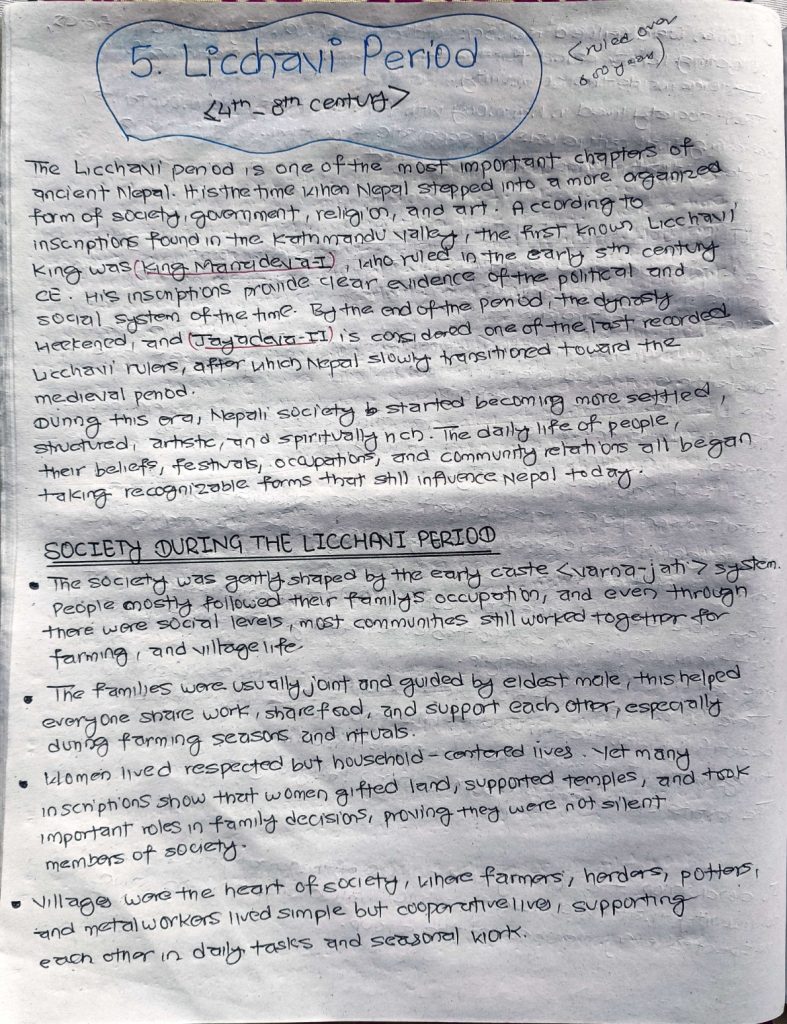 5. Licchavi Period
<4th - 8th century>
<ruled over
600 years>
The Licchavi period is one of the most important chapters of
ancient Nepal. It is the time when Nepal stepped into a more organized
form of society, government, religion, and art. According to
inscriptions found in the Kathmandu valley, the first known Licchavi
King was (King Manadeva-I), who ruled in the early 5th century
CE. His inscriptions provide clear evidence of the political and
social system of the time. By the end of the period, the dynasty
weekened, and (Jayadeva-II) is considered one of the last recorded
Licchavi rulers, after which Nepal slowly transitioned toward the
medieval period.
During this era, Nepali society started becoming more settled,
structured, artistic, and spiritually rich. The daily life of people,
their beliefs, festivals, occupations, and community relations all began
taking recognizable forms that still influence Nepal today.
SOCIETY DURING THE LICCHAVI PERIOD
• The society was gently shaped by the early caste <varna-jati> system.
People mostly followed their family's occupation, and even through
there were social levels, most communities still worked together for
farming, and village life.
• The families were usually joint and guided by eldest male, this helped
everyone share work, share food, and support each other, especially
during farming seasons and rituals.
• Women lived respected but household-centered lives. Yet many
inscriptions show that women gifted land, supported temples, and took
important roles in family decisions, proving they were not silent
members of society.
• Villages were the heart of society, where farmers, herders, potters,
and metalworkers lived simple but cooperative lives, supporting
each other in daily tasks and seasonal work.